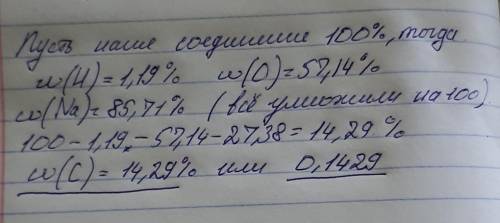 Пусть наше соединение 100%, тогда
w(H)=1,19% w(O)=57,14%
w(Na)=85,71% (всё умножили на 100)
100-1,19-57,14-27,38=14,29%
w(C)=14,29% или 0,1429